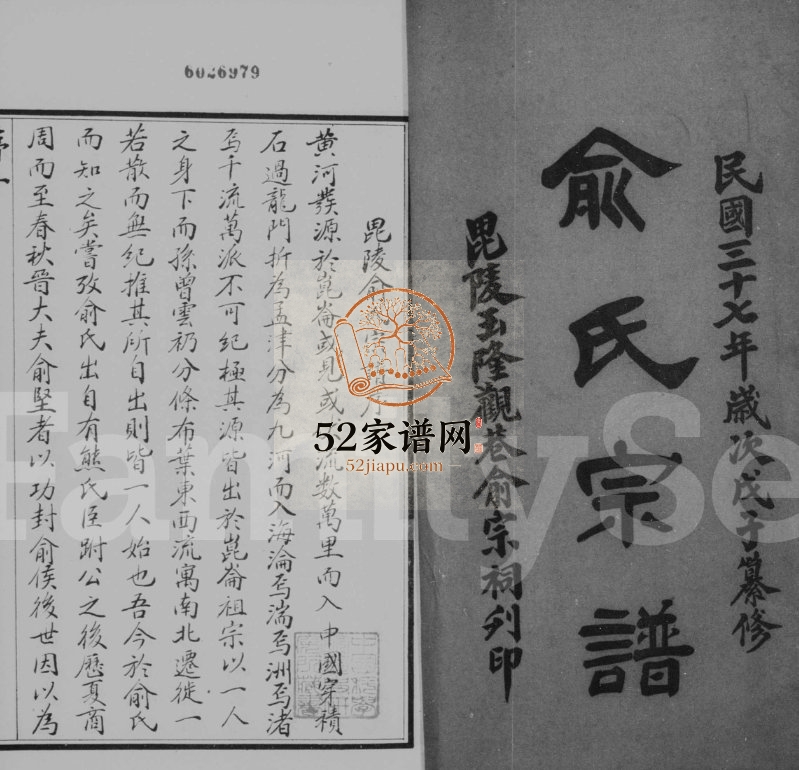 民國三十七年歲次戊子纂修
俞氏宗譜
毘陵玉隆觀巷俞宗祠列印
6026979
毘陵俞 序
黃河發源於崑崙或見或 流數萬里而入中國穿積
石過龍門折為孟津分為九河而入海淪焉湍焉洲焉渚
焉千流萬派不可紀極其源皆出於崑崙祖宗以一人
之身下而孫曾雲礽分條布葉東西流寓南北遷徙一
若散而無紀推其所自出則皆一人始也吾今於俞氏
而知之矣嘗攷俞氏出自有熊氏臣跗公之後歷夏商
周而至春秋晉大夫俞堅者以功封俞侯後世因以為
序一
52家谱网
52jiapu.com
FamilySe